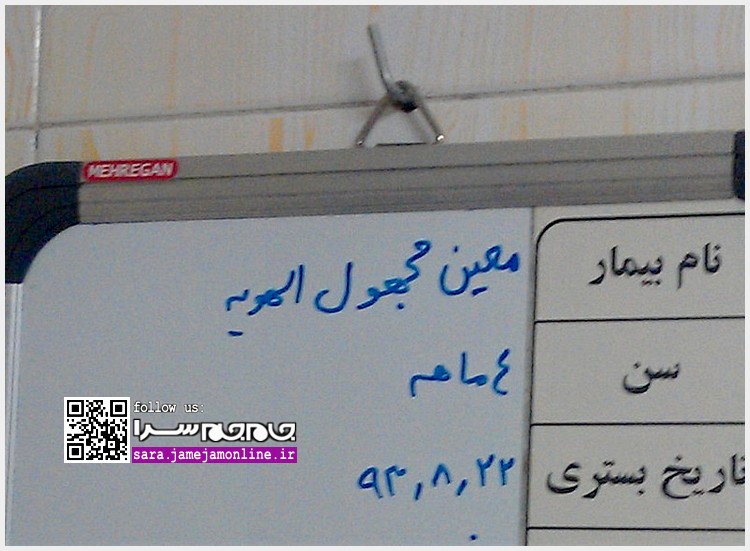 MEHREGAN
نام بیمار معین مجهول الهویه
سن ٤ ماهه
تاریخ بستری ۹۳,۸,۲۲
follow us:
جام جم سرا
sara.jamejamonline.ir